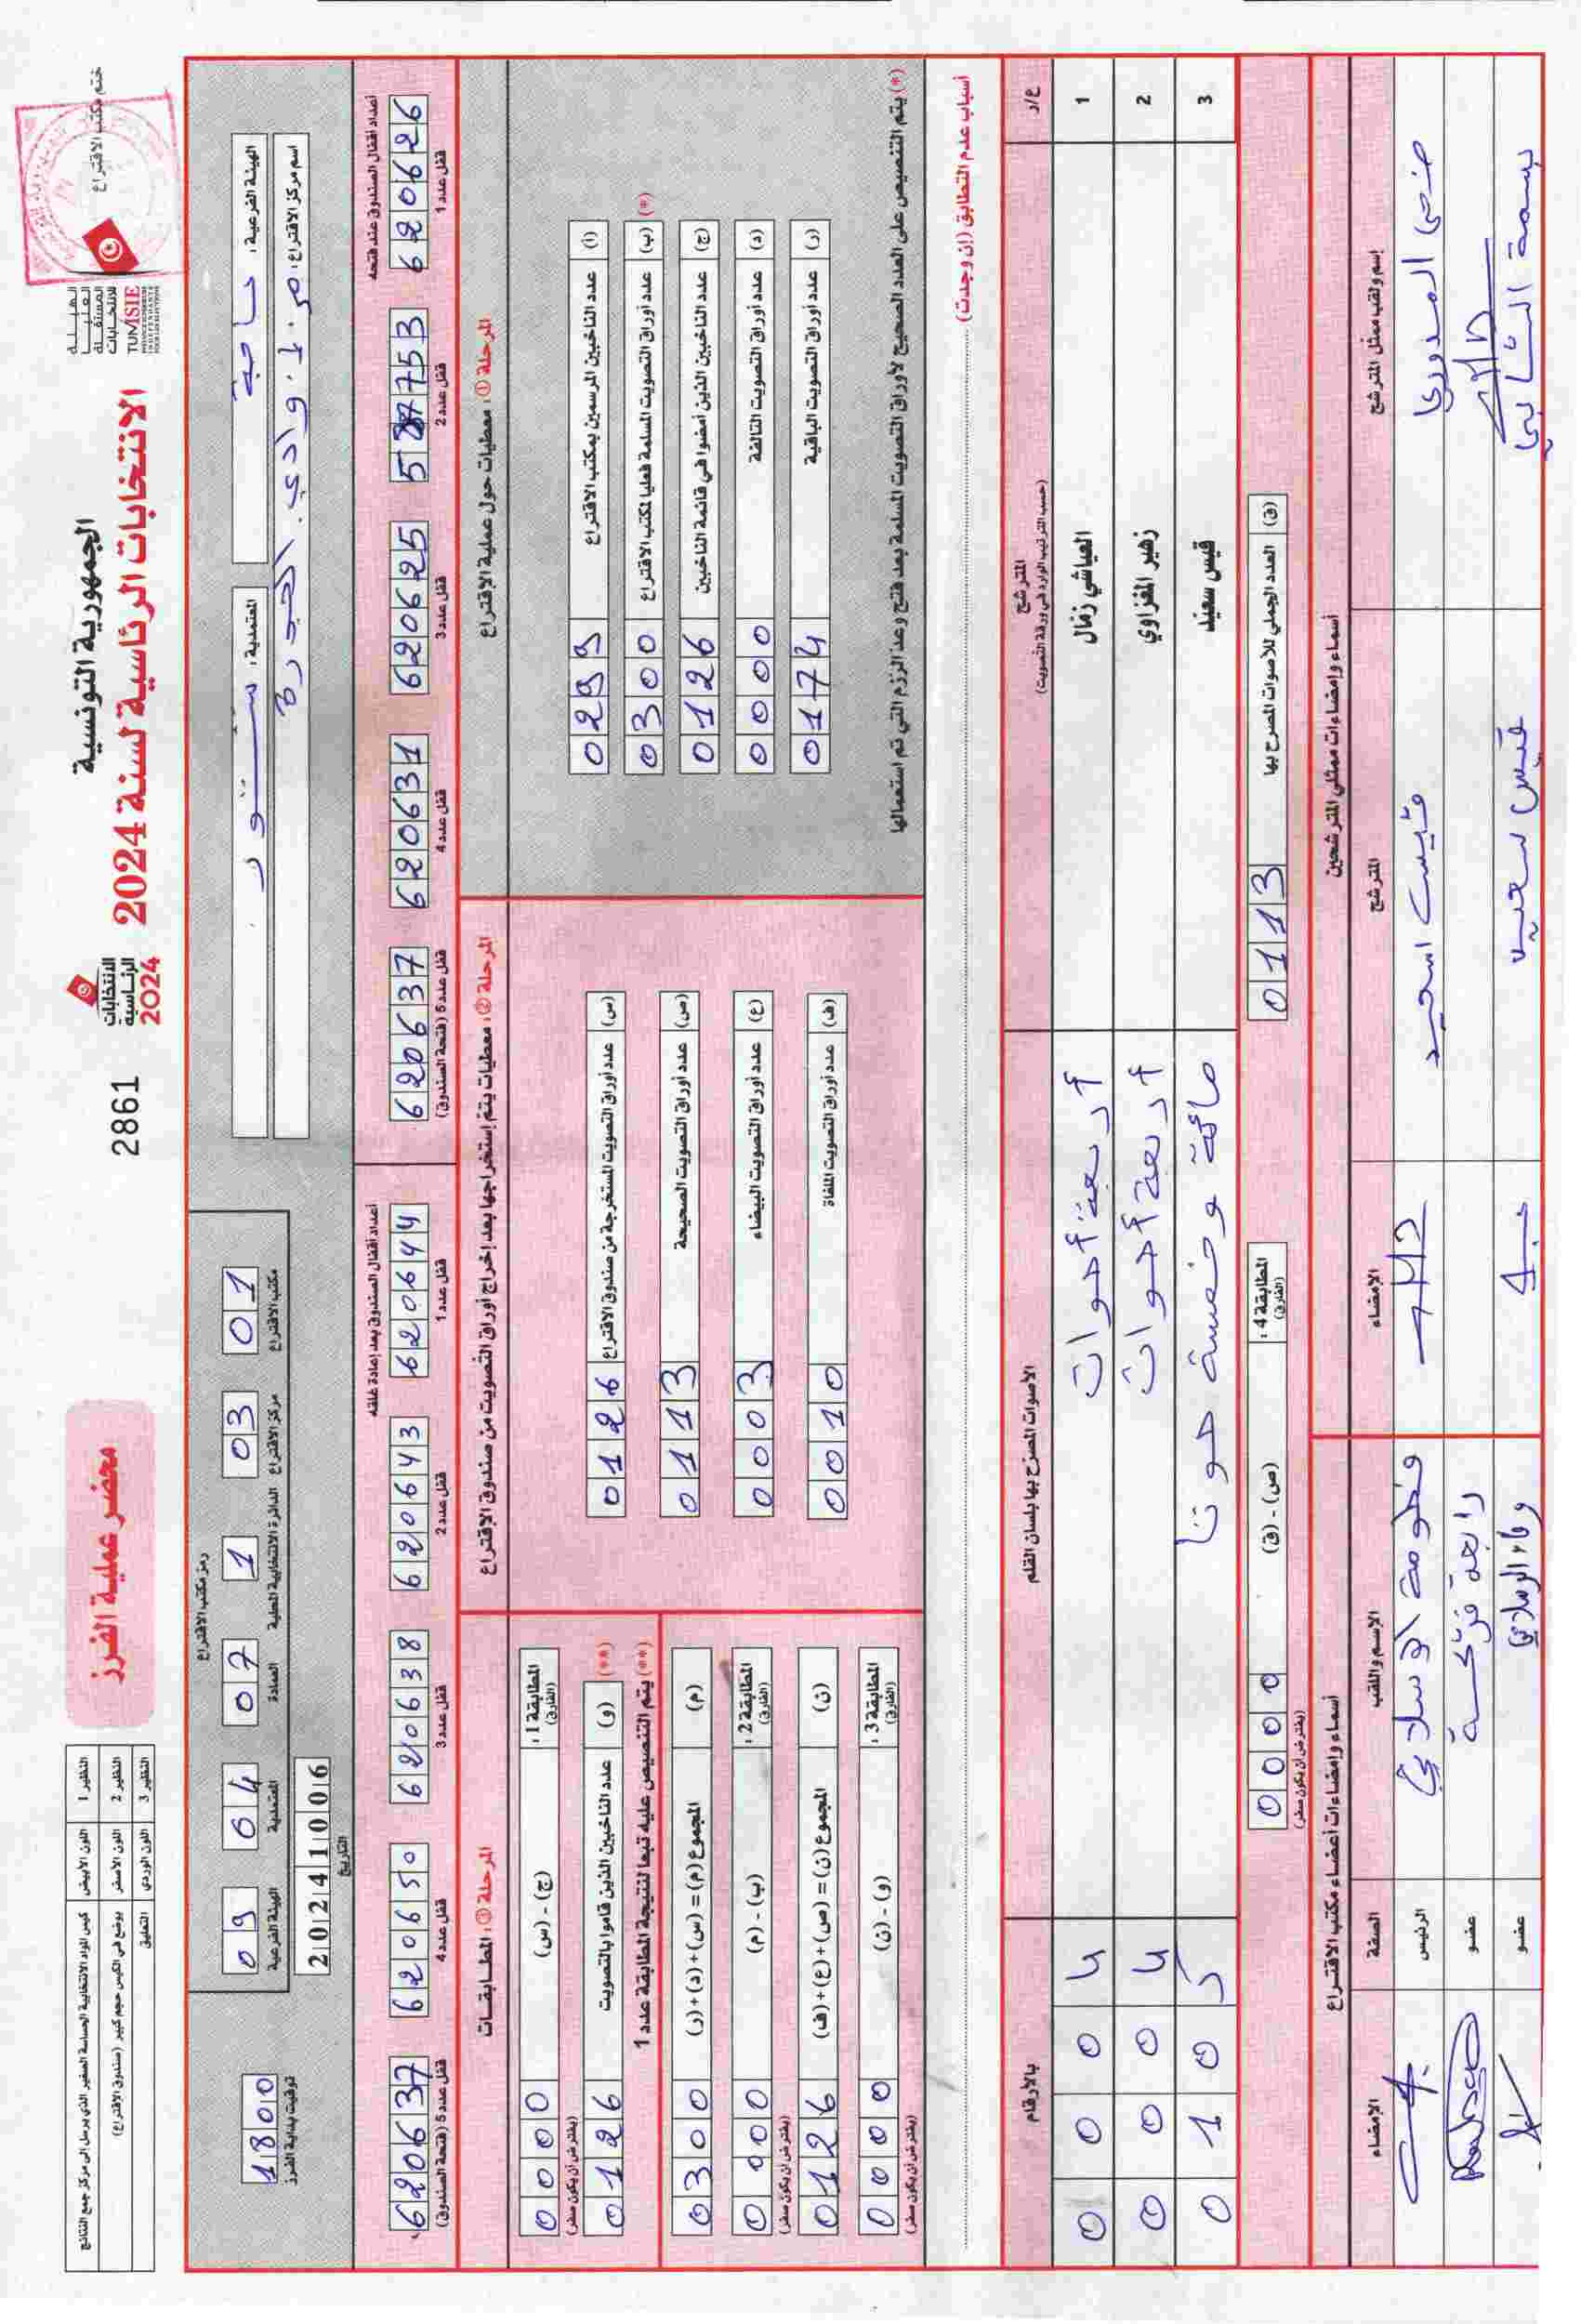 ختم مكتب الاقتراع
الهيئة العليا المستقلة للانتخابات
TUNISIE
الجمهورية التونسية
الانتخابات الرئاسية لسنة 2024
الانتخابات الرئاسية 2024
2861
محضر عملية الفرز
النظير 1 اللون الأبيض كيس المواد الانتخابية الحساسة الصغير الذي يرسل إلى مركز جمع النتائج
النظير 2 اللون الأصفر يوضع في الكيس حجم كبير (صندوق الاقتراع)
النظير 3 اللون الوردي التعليق
الهيئة الفرعية :
المعتمدية :
اسم مركز الاقتراع :
رمز مكتب الاقتراع
09 الهيئة الفرعية
04 المعتمدية
07 العمادة
1 الدائرة الانتخابية المحلية
03 مركز الاقتراع
01 مكتب الاقتراع
20241006
التاريخ
1800
توقيت بداية الفرز
أعداد أقفال الصندوق عند فتحه
620626 قفل عدد 1
قفل عدد 2
620625 قفل عدد 3
620631 قفل عدد 4
620637 قفل عدد 5 (فتحة الصندوق)
أعداد أقفال الصندوق بعد إعادة غلقه
620644 قفل عدد 1
620643 قفل عدد 2
620638 قفل عدد 3
620650 قفل عدد 4
620637 قفل عدد 5 (فتحة الصندوق)
المرحلة ① : معطيات حول عملية الاقتراع
(أ) عدد الناخبين المرسمين بمكتب الاقتراع 0299
(ب) عدد أوراق التصويت المسلمة فعليا لمكتب الاقتراع 0300 (*)
(ج) عدد الناخبين الذين أمضوا في قائمة الناخبين 0126
(د) عدد أوراق التصويت التالفة 0000
(ر) عدد أوراق التصويت الباقية 0174
(*) يتم التنصيص على العدد الصحيح لأوراق التصويت المسلمة بعد فتح وعد الرزم التي تم استعمالها
المرحلة ② : معطيات يتم إستخراجها بعد إخراج أوراق التصويت من صندوق الإقتراع
(س) عدد أوراق التصويت المستخرجة من صندوق الاقتراع 0126
(ص) عدد أوراق التصويت الصحيحة 0113
(ع) عدد أوراق التصويت البيضاء 0003
(ف) عدد أوراق التصويت الملغاة 0010
المرحلة ③ : المطابقات
المطابقة 1 : (الفارق) (ج) - (س) 0000
(يفترض أن يكون صفر)
(و) عدد الناخبين الذين قاموا بالتصويت 0126 (**)
(**) يتم التنصيص عليه تبعا لنتيجة المطابقة عدد 1
(م) المجموع (م) = (س)+(د)+(ر) 0300
المطابقة 2 : (الفارق) (ب) - (م) 0000
(يفترض أن يكون صفر)
(ن) المجموع (ن) = (ص)+(ع)+(ف) 0126
المطابقة 3 : (الفارق) (و) - (ن) 0000
(يفترض أن يكون صفر)
أسباب عدم التطابق (إن وجدت)
ع/ر المترشح (حسب الترتيب الوارد في ورقة التصويت) الأصوات المصرح بها بلسان القلم بالأرقام
1 العياشي زمال أربعة أصوات 0004
2 زهير المغزاوي أربعة أصوات 0004
3 قيس سعيد مائة وخمسة صوتا 0105
(ق) العدد الجملي للأصوات المصرح بها 0113
المطابقة 4 : (الفارق) (ص) - (ق) 0000
(يفترض أن يكون صفر)
أسماء وإمضاءات ممثلي المترشحين
إسم ولقب ممثل المترشح المترشح الإمضاء
قيس سعيد
قيس سعيد
أسماء وإمضاءات أعضاء مكتب الاقتراع
الإسم واللقب الصفة الإمضاء
الرئيس
عضو
عضو